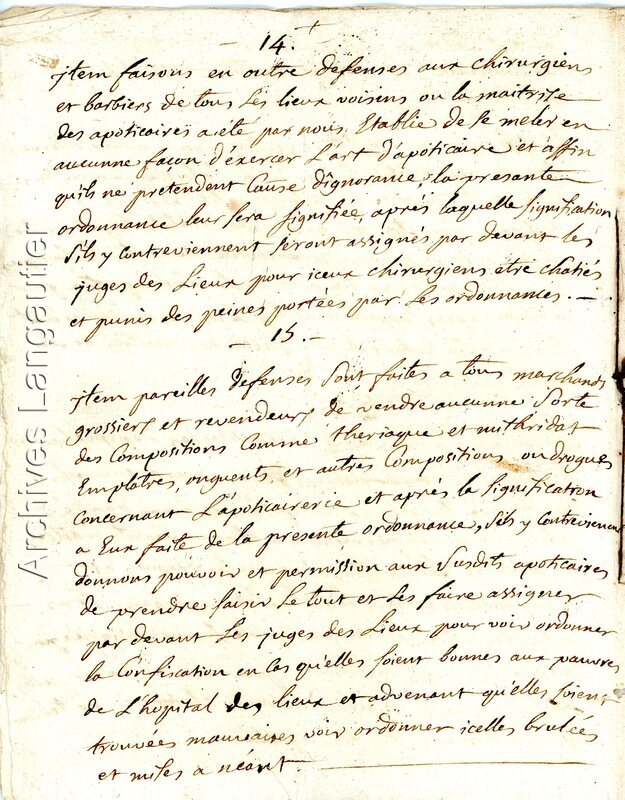 14.
jtem faisons en outre defenses aux chirurgiens
et barbiers de tous les lieux voisins ou la maitrise
des apoticaires a été par nous Etablie de se meler en
aucunne façon d'éxercer L'art d'apoticaire et affin
qu'ils ne prétendent Cause d'ignorance, la presante
ordonnance leur sera signifiée, après laquelle signification
s'ils y contreviennent seront assignés par devant les
juges des Lieux pour iceux chirurgiens être chatiés
et punis des peines portées par Les ordonnances. —
— 15 —
jtem pareilles defenses sont faites a tous marchands
grossiers et revendeurs de vendre aucunne sorte
des Compositions Comme theriaque et mithridat
Emplatres, onguents, et autres Compositions, ou drogues
concernant L'apoticairerie et après la signification
a Eux faite de la presente ordonnance, s'ils y contreviennent
donnons pouvoir et permission aux susdits apoticaires
de prendre saisir Le tout et Les faire assigner
par devant Les juges des Lieux pour voir ordonner
la Confiscation en cas qu'elles soient bonnes aux pauvres
de L'hopital des lieux et advenant qu'elles soient
trouvées mauvaises voir ordonner icelles brulées
et mises a néant.
Archives Langautier